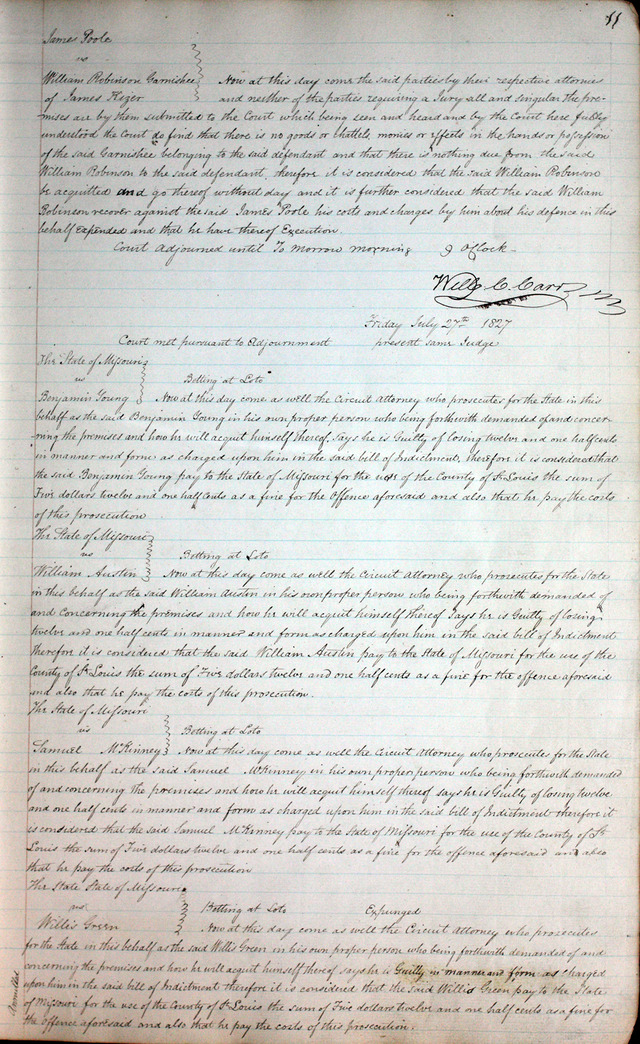 11
James Poole
vs
William Robinson Garnishee Now at this day come the said parties by their respective attornies
of James Kizer and neither of the parties requiring a Jury all and singular the pre-
mises are by them submitted to the Court which being seen and heard and by the Court here fully
understood the Court do find that there is no goods or chattels, monies or effects in the hands or possession
of the said Garnishee belonging to the said defendant and that there is nothing due from the said
William Robinson to the said defendant, therefore it is considered that the said William Robinson
be acquitted and go thereof without day and it is further considered that the said William
Robinson recover against the said James Poole his costs and charges by him about his defence in this
behalf Expended and that he have thereof Execution.
Court Adjourned until To Morrow morning 9 OClock
Will C. Carr
Friday July 27th 1827
Court met pursuant to Adjournment present same Judge
The State of Missouri
vs Betting at Loto
Benjamin Young Now at this day come as well the Circuit Attorney who prosecutes for the State in this
behalf as the said Benjamin Young in his own proper person who being forthwith demanded of and concer-
ning the premises and how he will acquit himself thereof, Says he is Guilty of losing twelve and one half cents
in manner and form as charged upon him in the said bill of Indictment, therefore it is considered that
the said Benjamin Young pay to the State of Missouri for the use of the County of St Louis the sum of
Five dollars twelve and one half Cents as a fine for the Offence aforesaid and also that he pay the costs
of this prosecution
The State of Missouri
vs Betting at Loto
William Austin Now at this day come as well the Circuit Attorney who prosecutes for the State
in this behalf as the said William Austin in his own proper person who being forthwith demanded of
and concerning the premises and how he will acquit himself thereof Says he is Guilty of losing
twelve and one half cents in manner and form as charged upon him in the said bill of Indictment
therefore it is considered that the said William Austin pay to the State of Missouri for the use of the
County of St Louis the sum of Five dollars twelve and one half cents as a fine for the offence aforesaid
and also that he pay the costs of this prosecution.
The State of Missouri
vs Betting at Loto
Samuel McKinney Now at this day come as well the Circuit Attorney who prosecutes for the State
in this behalf as the said Samuel McKenney in his own proper person who being forthwith demanded
of and concerning the premises and how he will acquit himself thereof says he is Guilty of losing twelve
and one half cents in manner and form as charged upon him in the said bill of Indictment therefore it
is considered that the said Samuel McKinney pay to the State of Missouri for the use of the County of St
Louis the sum of Five dollars twelve and one half cents as a fine for the offence aforesaid and also
that he pay the costs of this prosecution
The State State of Missouri
vs Betting at Loto Expunged
Willis Green Now at this day come as well the Circuit Attorney who prosecutes
for the State in this behalf as the said Willis Green in his own proper person who being forthwith demanded of and
concerning the premises and how he will acquit himself thereof says he is Guilty in manner and form as charged
upon him in the said bill of Indictment therefore it is considered that the said Willis Green pay to the State
of Missouri for the use of the County of St Louis the sum of Five dollars twelve and one half cents as a fine for
the offence aforesaid and also that he pay the costs of this prosecution.